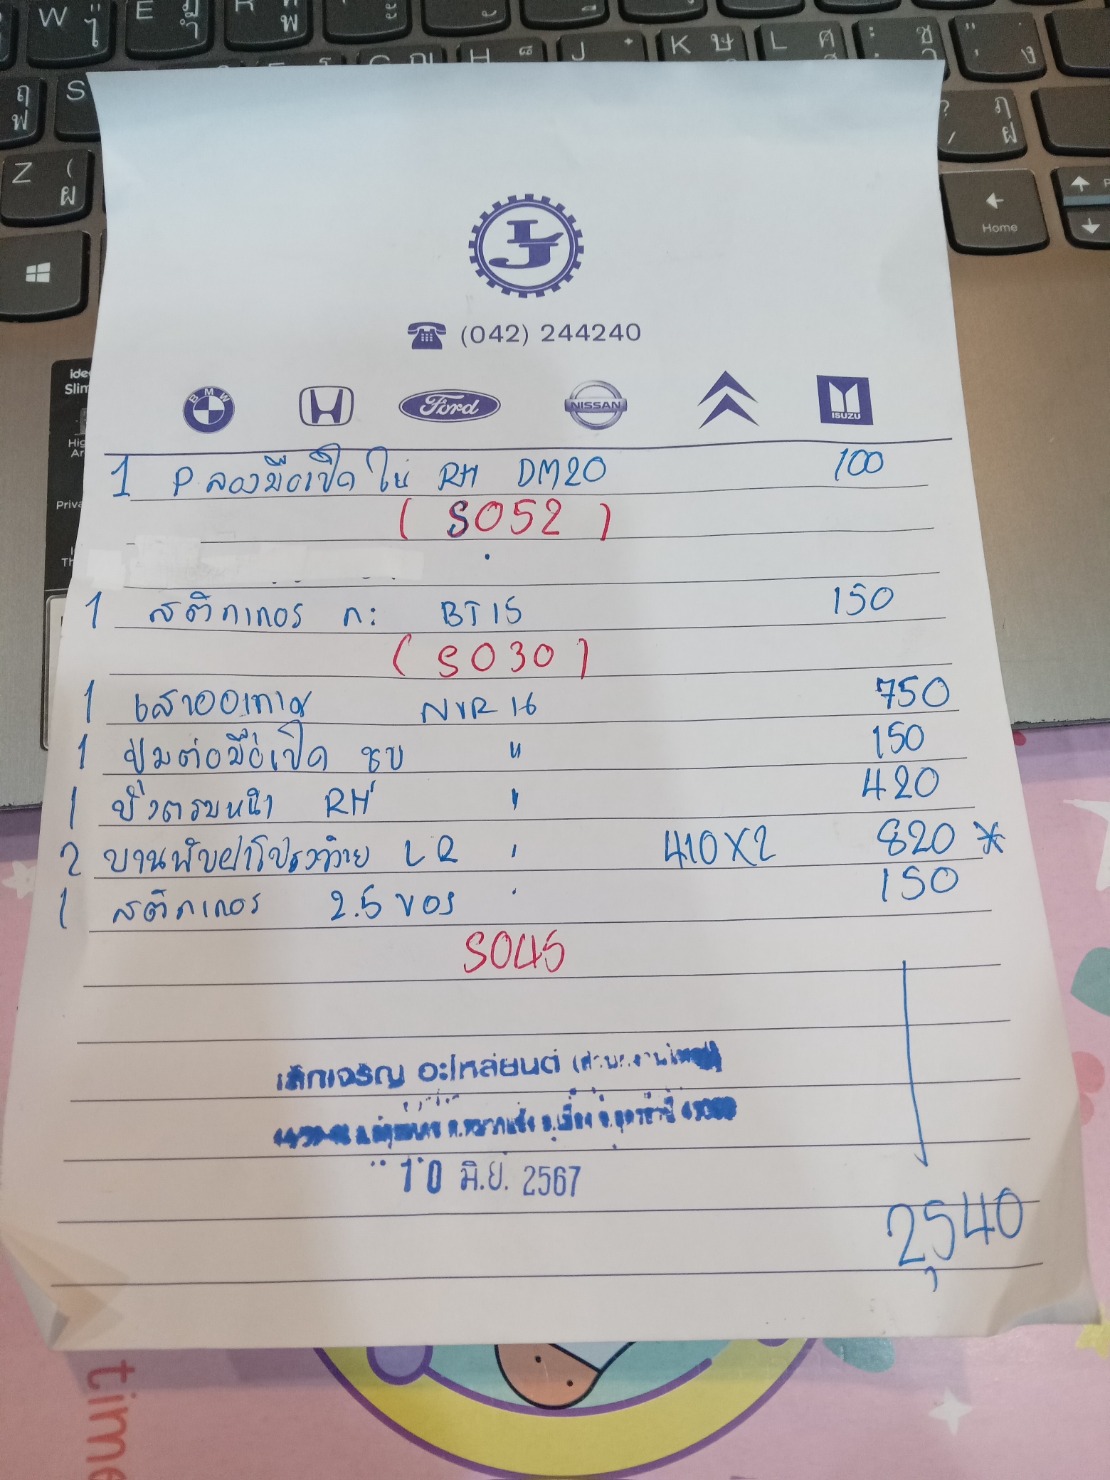 W ไ
E
R พ
H
J
K ษ
L ศ
ซ ว
ง
ฤ ฟ
S
Z ( ผ
? / ฦ ฝ
Home
LJ
☎ (042) 244240
BMW
Ford
NISSAN
ISUZU
1 P รองมือเปิด ใน RH DM20 100
( S052 )
1 สติกเกอร์ ก: BT15 150
( S030 )
1 เสาอากาศ NVR 16 750
1 ปุ่มต่อมือเปิด ชบ " 150
1 RH " 420
2 L R 410X2 820 *
1 สติกเกอร 2.5 " 150
S045
เล็กเจริญ อะไหล่ยนต์
10 มิ.ย. 2567
2,540
time